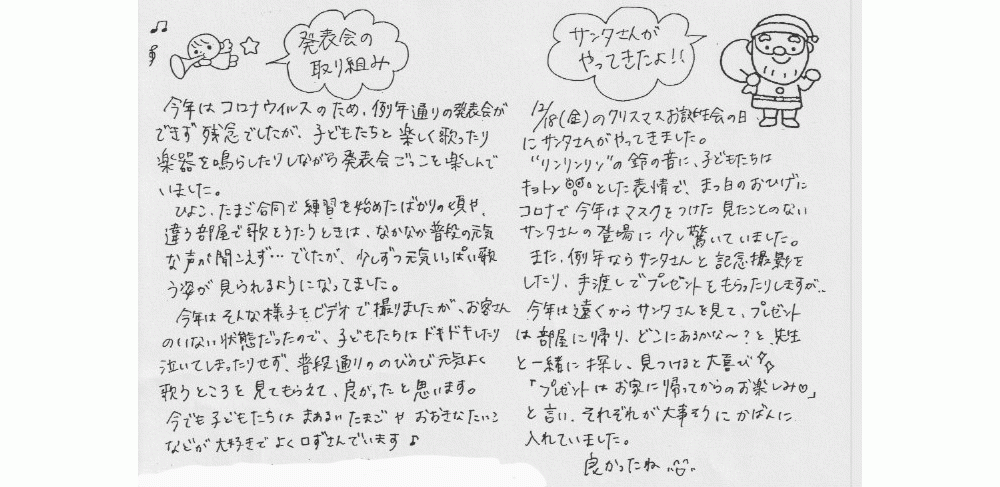 発表会の
取り組み
今年はコロナウイルスのため、例年通りの発表会が
できず残念でしたが、子どもたちと楽しく歌ったり
楽器を鳴らしたりしながら発表会ごっこを楽しんで
いました。
ひよこ、たまご合同で練習を始めたばかりの頃や、
違う部屋で歌をうたうときは、なかなか普段の元気
な声が聞こえず…でしたが、少しずつ元気いっぱい歌
う姿が見られるようになってました。
今年はそんな様子をビデオで撮りましたが、お客さん
のいない状態だったので、子どもたちはドキドキしたり
泣いてしまったりせず、普段通りののびのび元気よく
歌うところを見てもらえて、良かったと思います。
今でも子どもたちはまあるいたまごやおおきなたいこ
などが大好きでよく口ずさんでいます♪
サンタさんが
やってきたよ!!
12/18(金)のクリスマスお誕生会の日
にサンタさんがやってきました。
"リンリンリン"の鈴の音に、子どもたちは
キョトンとした表情で、まっ白のおひげに
コロナで今年はマスクをつけた見たことのない
サンタさんの登場に少し驚いていました。
また、例年ならサンタさんと記念撮影を
したり、手渡しでプレゼントをもらったりしますが、
今年は遠くからサンタさんを見て、プレゼント
は部屋に帰り、どこにあるかな〜?と、先生
と一緒に探し、見つけると大喜び
「プレゼントはお家に帰ってからのお楽しみ♡」
と言い、それぞれが大事そうにかばんに
入れていました。
良かったね